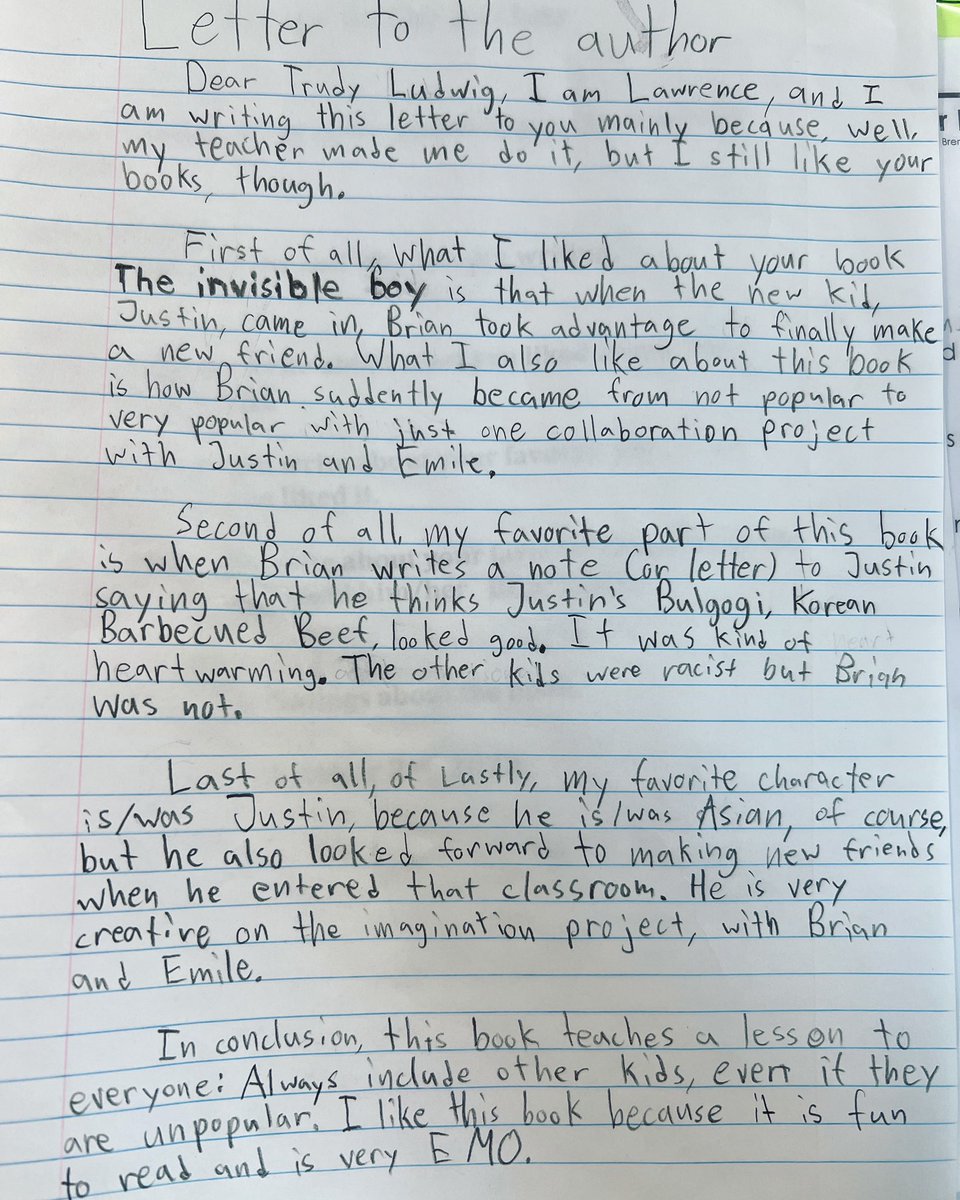 Letter to the author
Dear Trudy Ludwig, I am Lawrence, and I
am writing this letter to you mainly because, well,
my teacher made me do it, but I still like your
books, though.
First of all, what I liked about your book
The invisible boy is that when the new kid,
Justin, came in, Brian took advantage to finally make
a new friend. What I also like about this book
is how Brian suddently became from not popular to
very popular with just one collaboration project
with Justin and Emile.
Second of all, my favorite part of this book
is when Brian writes a note (or letter) to Justin
saying that he thinks Justin's Bulgogi, Korean
Barbecued Beef, looked good. It was kind of
heartwarming. The other kids were racist but Brian
was not.
Last of all, of Lastly, my favorite character
is/was Justin, because he is/was Asian, of course,
but he also looked forward to making new friends
when he entered that classroom. He is very
creative on the imagination project, with Brian
and Emile.
In conclusion, this book teaches a lesson to
everyone: Always include other kids, even if they
are unpopular. I like this book because it is fun
to read and is very EMO.